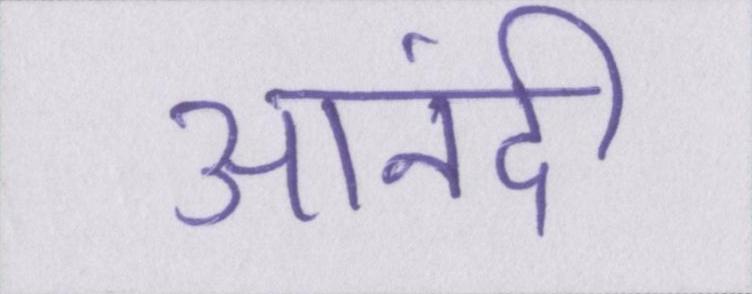 आनंदी